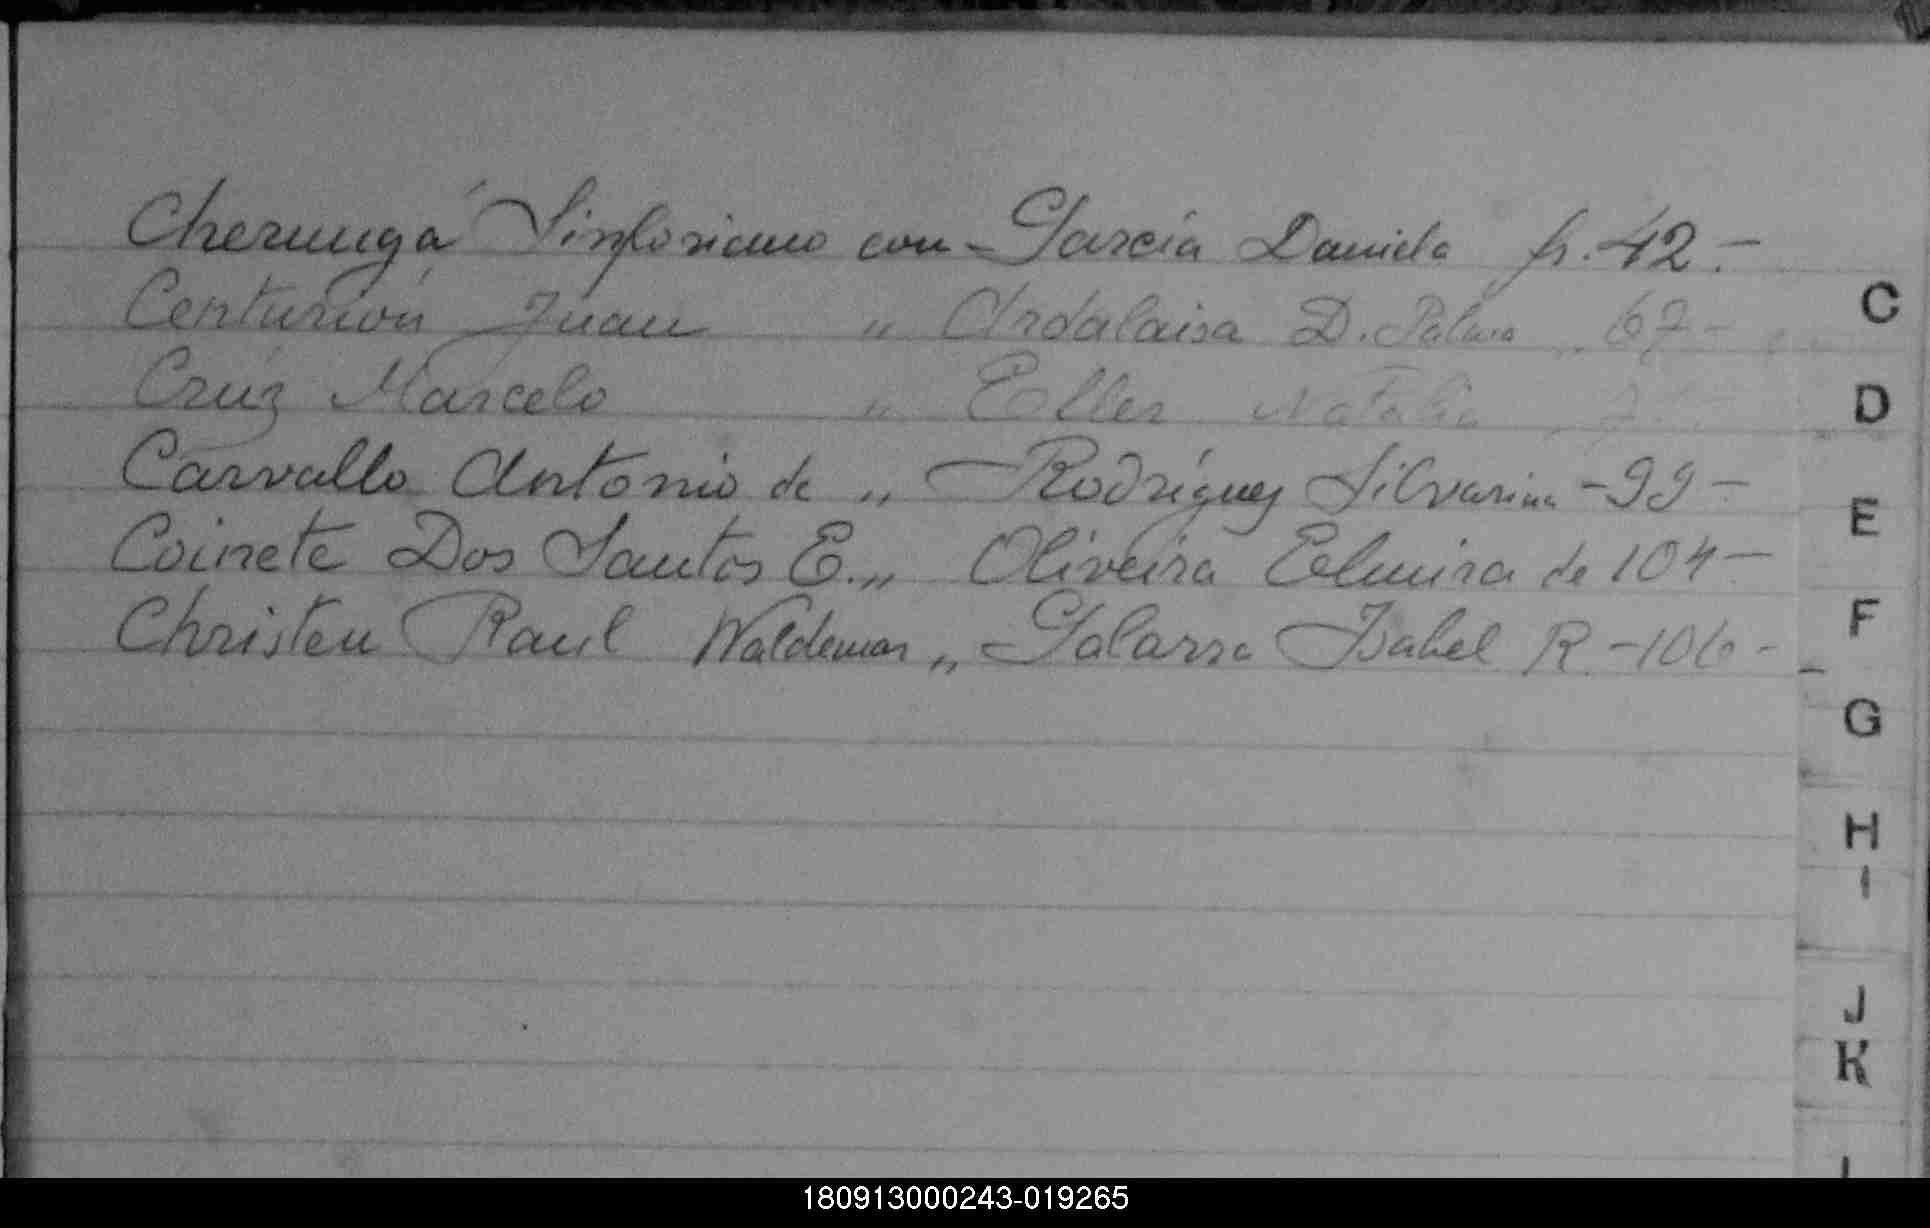 Cherungá Sinforiano con García Daniela fs. 42.-
Centurión Juan " Ardalaisa D. Palma " 67-
Cruz Marcelo " Eller Natalia
Carvallo Antonio de " Rodríguez Silvarina -99-
Coinete Dos Santos E. " Oliveira Elmira de 104-
Christen Raul Waldemar " Galarza Isabel R -106-
C
D
E
F
G
H
I
J
K
L
180913000243-019265